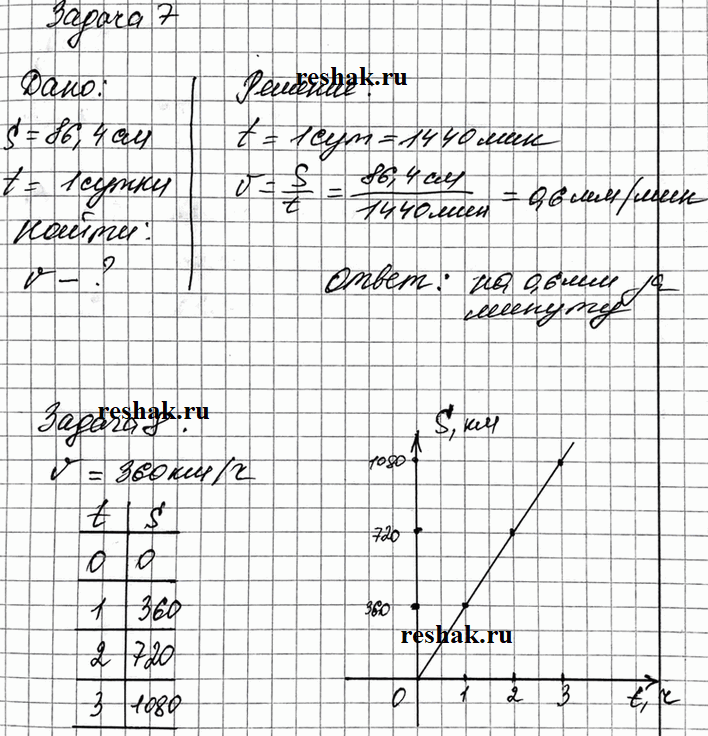 Задача 7
reshak.ru
Дано:
Решение:
S = 86,4 см
t = 1 сут = 1440 мин
t = 1 сутки
v = S/t = 86,4 см/1440 мин = 0,6 мм/мин
Найти:
v - ?
Ответ: на 0,6 мм за
минуту
reshak.ru
Задача 8:
v = 360 км/ч
t S
0 0
1 360
2 720
3 1080
S, км
1080
720
360
reshak.ru
0 1 2 3 t, ч